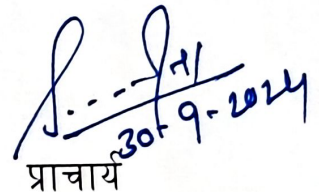 30-9-2024
प्राचार्य